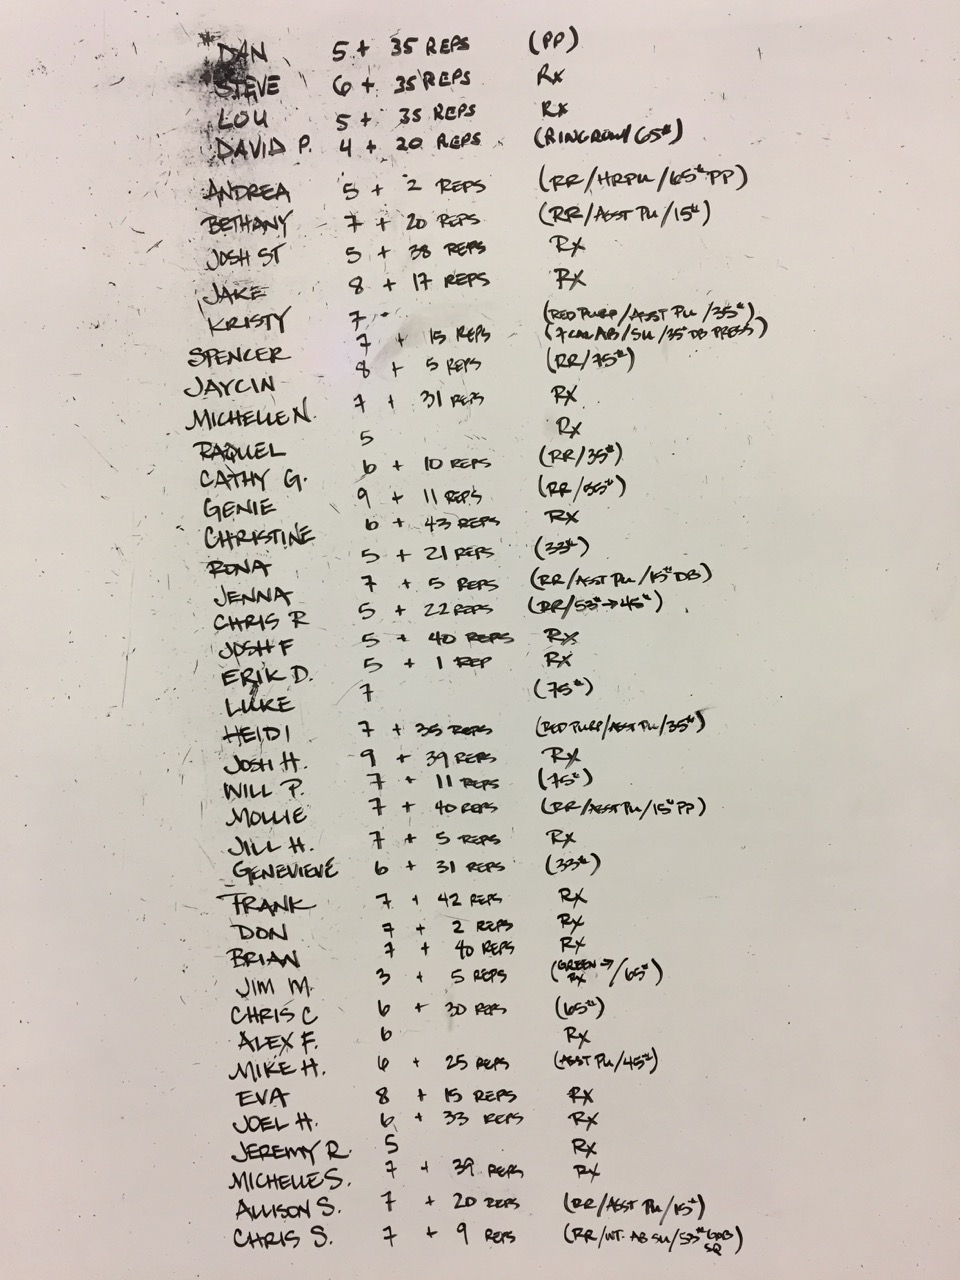 DAN 5 + 35 REPS (PP)
STEVE 6 + 35 REPS Rx
LOU 5 + 35 REPS Rx
DAVID P. 4 + 20 REPS (RINGROW/65#)
ANDREA 5 + 2 REPS (RR/HRPU/65# PP)
BETHANY 7 + 20 REPS (RR/ASST PU/15#)
JOSH ST 5 + 38 REPS Rx
JAKE 8 + 17 REPS Rx
KRISTY 7 (RED PURP/ASST PU/35#)
SPENCER 7 + 15 REPS (7 CAL AB/SU/35# DB PRESS)
JAYCIN 8 + 5 REPS (RR/75#)
MICHELLE N. 7 + 31 REPS Rx
RAQUEL 5 Rx
CATHY G. 6 + 10 REPS (RR/35#)
GENIE 9 + 11 REPS (RR/55#)
CHRISTINE 6 + 43 REPS Rx
RONA 5 + 21 REPS (33#)
JENNA 7 + 5 REPS (RR/ASST PU/15# DB)
CHRIS R 5 + 22 REPS (RR/53#→45#)
JOSH F 5 + 40 REPS Rx
ERIK D. 5 + 1 REP Rx
LUKE 7 (75#)
HEIDI 7 + 35 REPS (RED PURP/ASST PU/35#)
JOSH H. 9 + 39 REPS Rx
WILL P. 7 + 11 REPS (75#)
MOLLIE 7 + 40 REPS (RR/ASST PU/15# PP)
JILL H. 7 + 5 REPS Rx
GENEVIEVE 6 + 31 REPS (33#)
FRANK 7 + 42 REPS Rx
DON 7 + 2 REPS Rx
BRIAN 7 + 40 REPS Rx
JIM M. 3 + 5 REPS (GREEN→ RX/65#)
CHRIS C 6 + 30 REPS (65#)
ALEX F. 6 Rx
MIKE H. 6 + 25 REPS (ASST PU/45#)
EVA 8 + 15 REPS Rx
JOEL H. 6 + 33 REPS Rx
JEREMY R 5 Rx
MICHELLE S. 7 + 39 REPS Rx
ALLISON S. 7 + 20 REPS (RR/ASST PU/15#)
CHRIS S. 7 + 9 REPS (RR/WT. AB SU/53# GOB SQ)